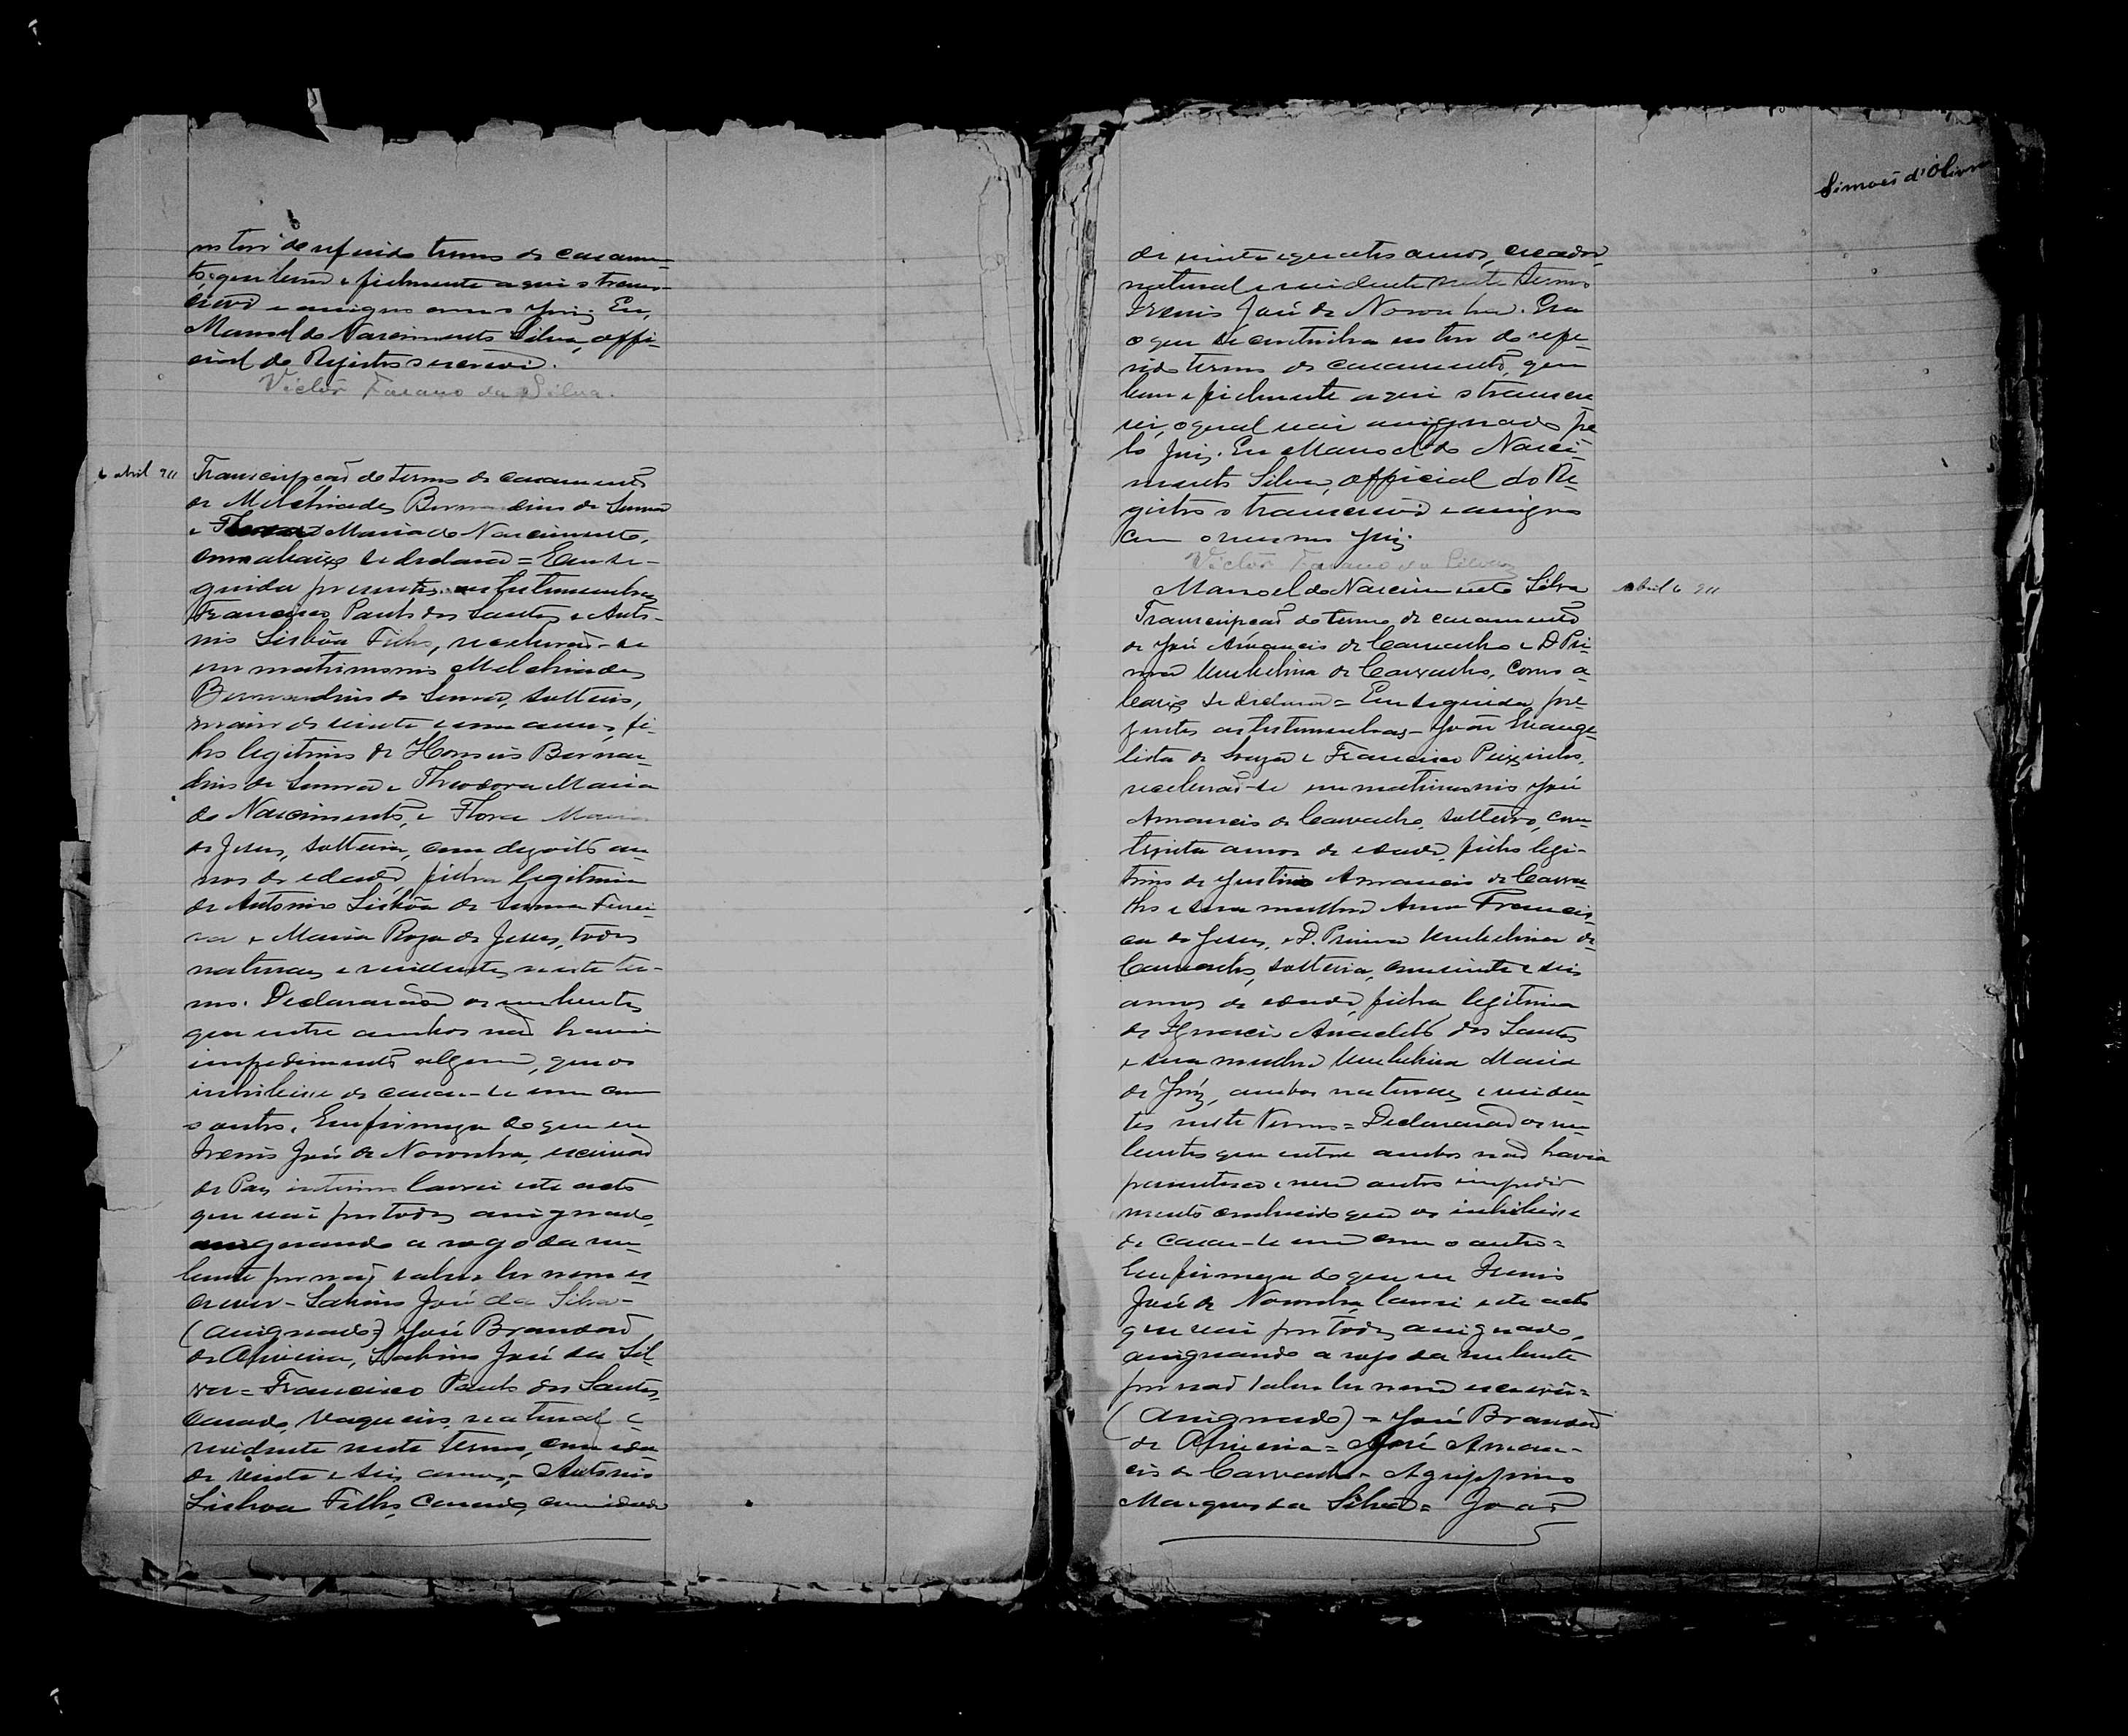 no teor do referido termo de casamen-
to, que bem e fielmente aqui o trans-
crevi e assigno com o Juiz. Eu,
Manoel do Nascimento Silva, offi-
cial do Registro o escrevi.
Victor Fasano da Silva.
6 abril 911
Transcripção do termo de casamento
de Melchiades Bernardino de Senna
e Maria do Nascimento,
como abaixo se declara = Em se-
guida presentes as testemunhas
Francisco Paulo dos Santos e Anto-
nio Lisbôa Filho, receberão-se
em matrimonio Melchiades
Bernardino de Senna, solteiro,
maior de vinte e um annos, fi-
lho legitimo de Bernar-
dino de Senna e Theodora Maria
do Nascimento, e Flora Maria
de Jesus, solteira, com dezoito an-
nos de edade, filha legitima
de Antonio Lisbôa de Senna Ferrei-
ra e Maria Roza de Jesus, todos
naturaes e residentes neste ter-
mo. Declararão os nubentes
que entre ambos não havia
impedimento algum, que os
inhibisse de casar-se um com
o outro. Em firmeza do que eu
Irenio José de Noronha, escrivão
de Paz interino lavrei este acto
que vai por todos assignado,
assignando a rogo da nu-
bente por não saber ler nem es-
crever - Sabino José da Silva -
(Assignados) José Brandão
de Oliveira, Sabino José da Sil-
va = Francisco Paulo dos Santos,
casado, vaqueiro, natural e
residente neste termo, com eda-
de vinte e seis annos, - Antonio
Lisboa Filho, casado, com idade
Simões d'Oliveira
de vinte e quatro annos, creador
natural e residente neste termo
Irenio José de Noronha. Era
o que se continha no teor do refe-
rido termo de casamento, que
bem e fielmente aqui o transcre
vi, o qual vai assignado pe
lo Juiz. Eu Manoel do Nasci-
mento Silva, official do Re-
gistro o transcrevi e assigno
com o mesmo Juiz.
Victor Fasano da Silva
Manoel do Nascimento Silva
Abril 6 911
Transcripção do termo de casamento
de José Amancio de Carvalho e D. Pri-
ma Umbelina de Carvalho, como a-
baixo se declara = Em seguida pre-
zentes as testemunhas - João Evange-
lista de Souza e Francisco
receberão-se em matrimonio José
Amancio de Carvalho, solteiro, com
trinta annos de edade, filho legi-
timo de Justino Amancio de Carva-
lho e sua mulher Anna Francis-
ca de Jesus, e D. Prima Umbelina de
Carvalho, solteira, com vinte e seis
annos de edade, filha legitima
de Ignacio Anacleto dos Santos
e sua mulher Umbelina Maria
de ambos naturaes e residen-
tes neste Termo = Declararão os nu-
bentes que entre ambos não havia
parentesco e nem outro impedi-
mento conhecido que os inhibisse
de casar-se um com o outro =
Em firmeza do que eu Irenio
José de Noronha lavrei este acto
que vai por todos assignado,
assignando a rogo da nubente
por não saber ler nem escrever =
(Assignado) - José Brandão
de Oliveira = José Aman-
cio de Carvalho - Agrippino
Marques da Silva = João